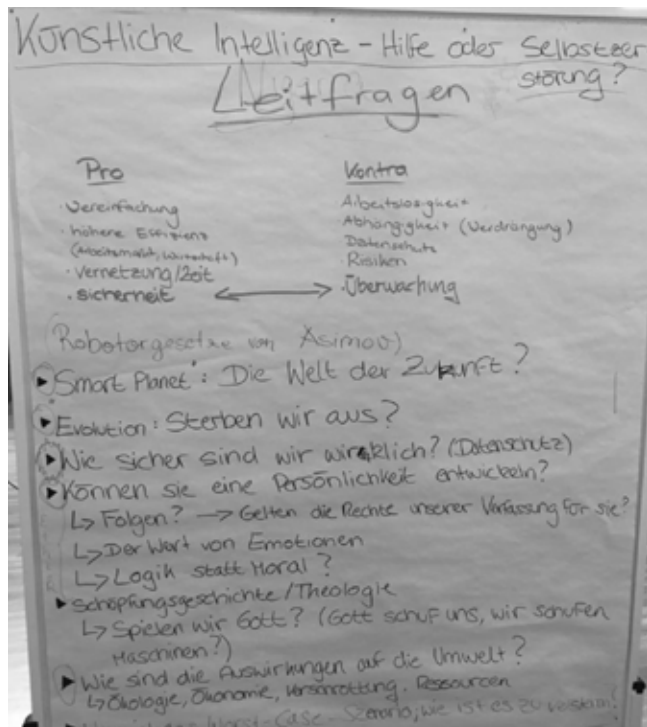 Künstliche Intelligenz - Hilfe oder Selbstzer
störung?
Leitfragen
Pro
· Vereinfachung
· höhere Effizienz
(Arbeitsmarkt, Wirtschaft)
· Vernetzung/Zeit
· Sicherheit
Kontra
Arbeitslosigkeit
Abhängigkeit (Verdrängung)
Datenschutz
Risiken
· Überwachung
(Robotergesetze von Asimov)
▸ Smart Planet: Die Welt der Zukunft?
▸ Evolution: Sterben wir aus?
▸ Wie sicher sind wir wirklich? (Datenschutz)
▸ Können sie eine Persönlichkeit entwickeln?
↳ Folgen? → Gelten die Rechte unserer Verfassung für sie?
↳ Der Wert von Emotionen
↳ Logik statt Moral?
▸ Schöpfungsgeschichte/Theologie
↳ Spielen wir Gott? (Gott schuf uns, wir schufen
Maschinen?)
▸ Wie sind die Auswirkungen auf die Umwelt?
↳ Ökologie, Ökonomie, Verschrottung, Ressourcen
Worst-Case-Szenario, wie ist es zu